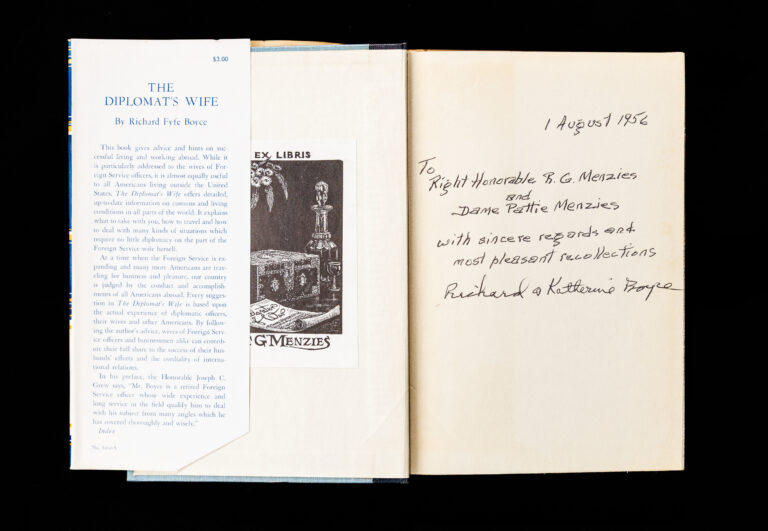 $3.00
THE
DIPLOMAT'S WIFE
By Richard Fyfe Boyce
This book gives advice and hints on suc-
cessful living and working abroad. While it
is particularly addressed to the wives of For-
eign Service officers, it is almost equally useful
to all Americans living outside the United
States. The Diplomat's Wife offers detailed,
up-to-date information on customs and living
conditions in all parts of the world. It explains
what to take with you, how to travel and how
to deal with many kinds of situations which
require no little diplomacy on the part of the
Foreign Service wife herself.
At a time when the Foreign Service is ex-
panding and many more Americans are trave-
ling for business and pleasure, our country
is judged by the conduct and accomplish-
ments of all Americans abroad. Every sugges-
tion in The Diplomat's Wife is based upon
the actual experience of diplomatic officers,
their wives and other Americans. By follow-
ing the author's advice, wives of Foreign Serv-
ice officers and businessmen alike can contrib-
ute their full share to the success of their hus-
bands' efforts and the cordiality of interna-
tional relations.
In his preface, the Honorable Joseph C.
Grew says, "Mr. Boyce is a retired Foreign
Service officer whose wide experience and
long service in the field qualify him to deal
with his subject from many angles which he
has covered thoroughly and wisely."
Index
EX LIBRIS
G MENZIES
1 August 1956
To
Right Honorable R. G. Menzies
and
Dame Pattie Menzies
with sincere regards and
most pleasant recollections
Richard & Katherine Boyce